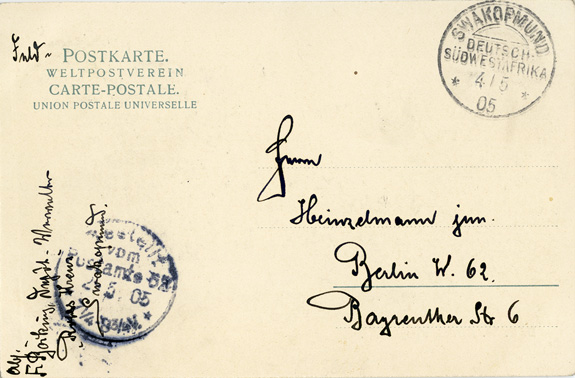 Feld-
POSTKARTE.
WELTPOSTVEREIN
CARTE-POSTALE.
UNION POSTALE UNIVERSELLE
SWAKOPMUND
DEUTSCH-
SÜDWESTAFRIKA
4/5
05
Herrn
Heinzelmann jun.
Berlin W. 62.
Bayreuther Str 6
Bestellt
vom
Postamte 62
5. 05
Abs.
Swakopmund.